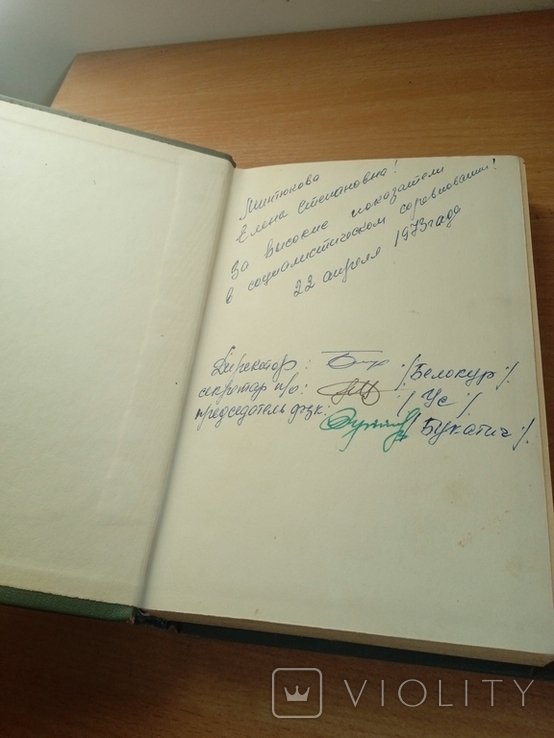 Минтюкова
Елена Степановна!
За высокие показатели
в социалистическом соревновании!
22 апреля 1973 года
Директор: /Белокур/.
секретар п/о: /Ус/.
председатель фзк: /Букатич/.
VIOLITY